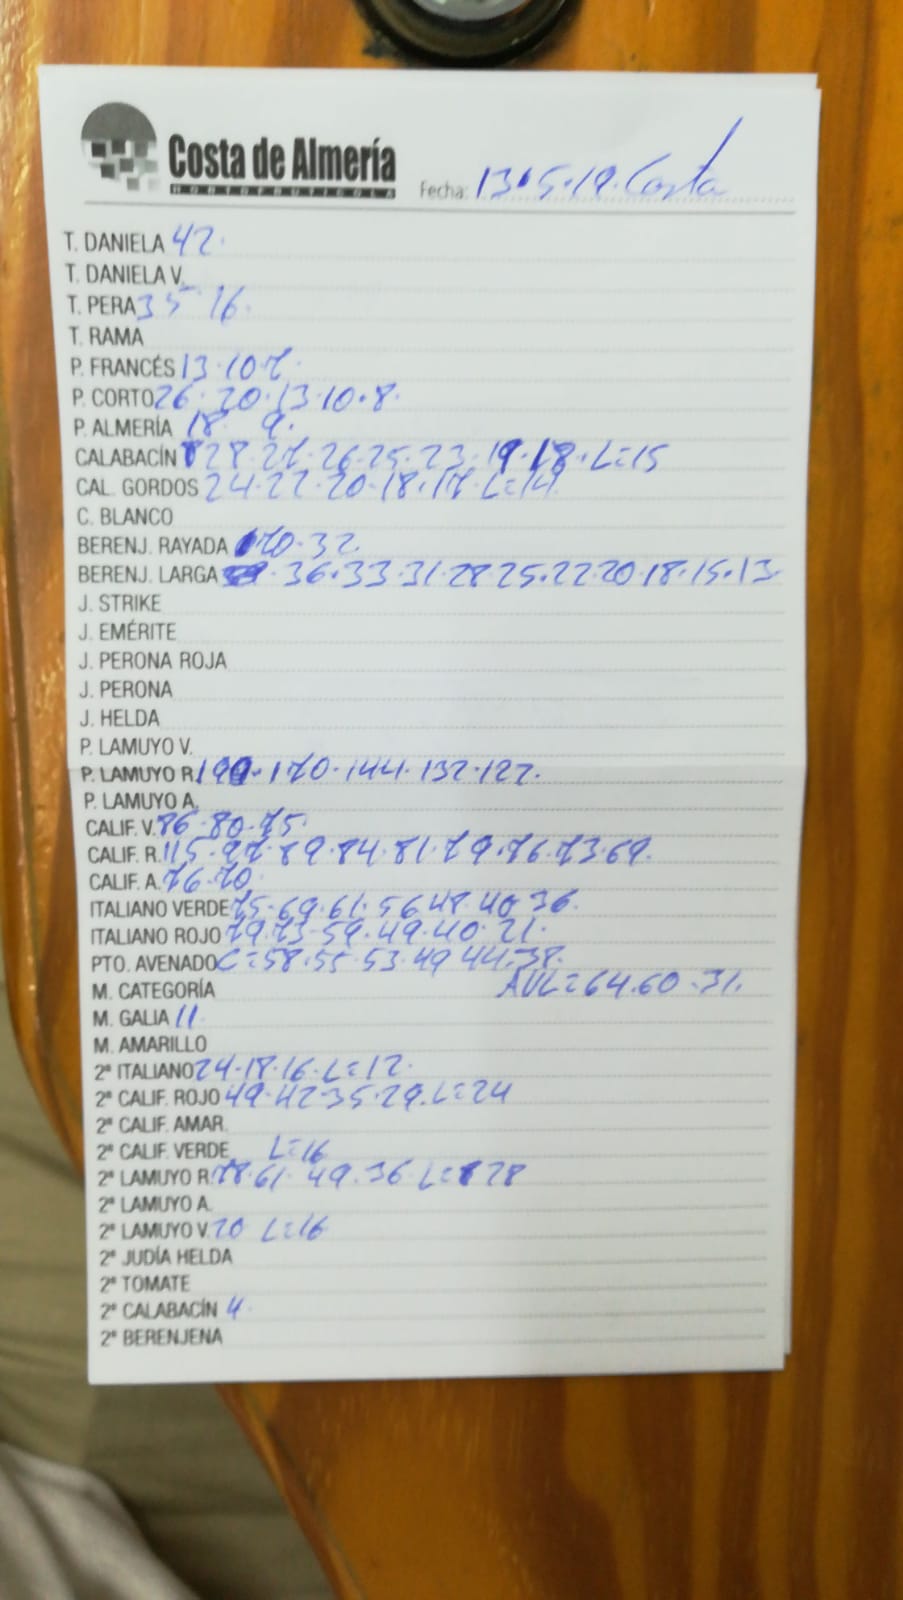 Costa de Almería
HORTOFRUTICOLA
Fecha: 13.5.19. Costa
T. DANIELA 42.
T. DANIELA V.
T. PERA 35 16.
T. RAMA
P. FRANCÉS 13.10.7.
P. CORTO 26.20.13.10.8.
P. ALMERÍA 18 9.
CALABACÍN 28.27.26.25.23.19.18.L=15
CAL. GORDOS 24.22.20.18.17.L=14
C. BLANCO
BERENJ. RAYADA 70.32
BERENJ. LARGA 36.33.31.28 25.22.20.18.15.13
J. STRIKE
J. EMÉRITE
J. PERONA ROJA
J. PERONA
J. HELDA
P. LAMUYO V.
P. LAMUYO R. 190.170.144.132.127.
P. LAMUYO A.
CALIF. V. 86.80.75
CALIF. R. 115.97.89.84.81.79.76.73.69.
CALIF. A. 76.70
ITALIANO VERDE 75.69.61.56 48.40 36.
ITALIANO ROJO 79.73.59.49.40.21.
PTO. AVENADO C=58.55.53.49 44.38.
M. CATEGORÍA AVL=64.60.31.
M. GALIA 11
M. AMARILLO
2ª ITALIANO 24.18.16.L=12.
2ª CALIF. ROJO 49.42.35.29.L=24
2ª CALIF. AMAR.
2ª CALIF. VERDE L=16
2ª LAMUYO R. 78.61.49.36.L=28
2ª LAMUYO A.
2ª LAMUYO V. 20 L=16
2ª JUDÍA HELDA
2ª TOMATE
2ª CALABACÍN 4.
2ª BERENJENA